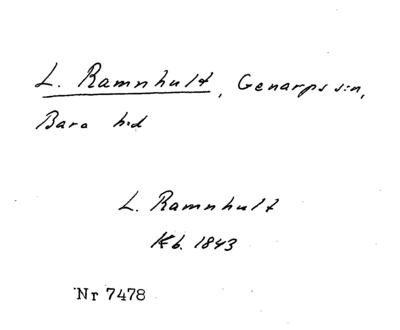 L. Ramnhult, Genarps s:n,
Bara h:d
L. Ramnhult
Kb. 1843
Nr 7478